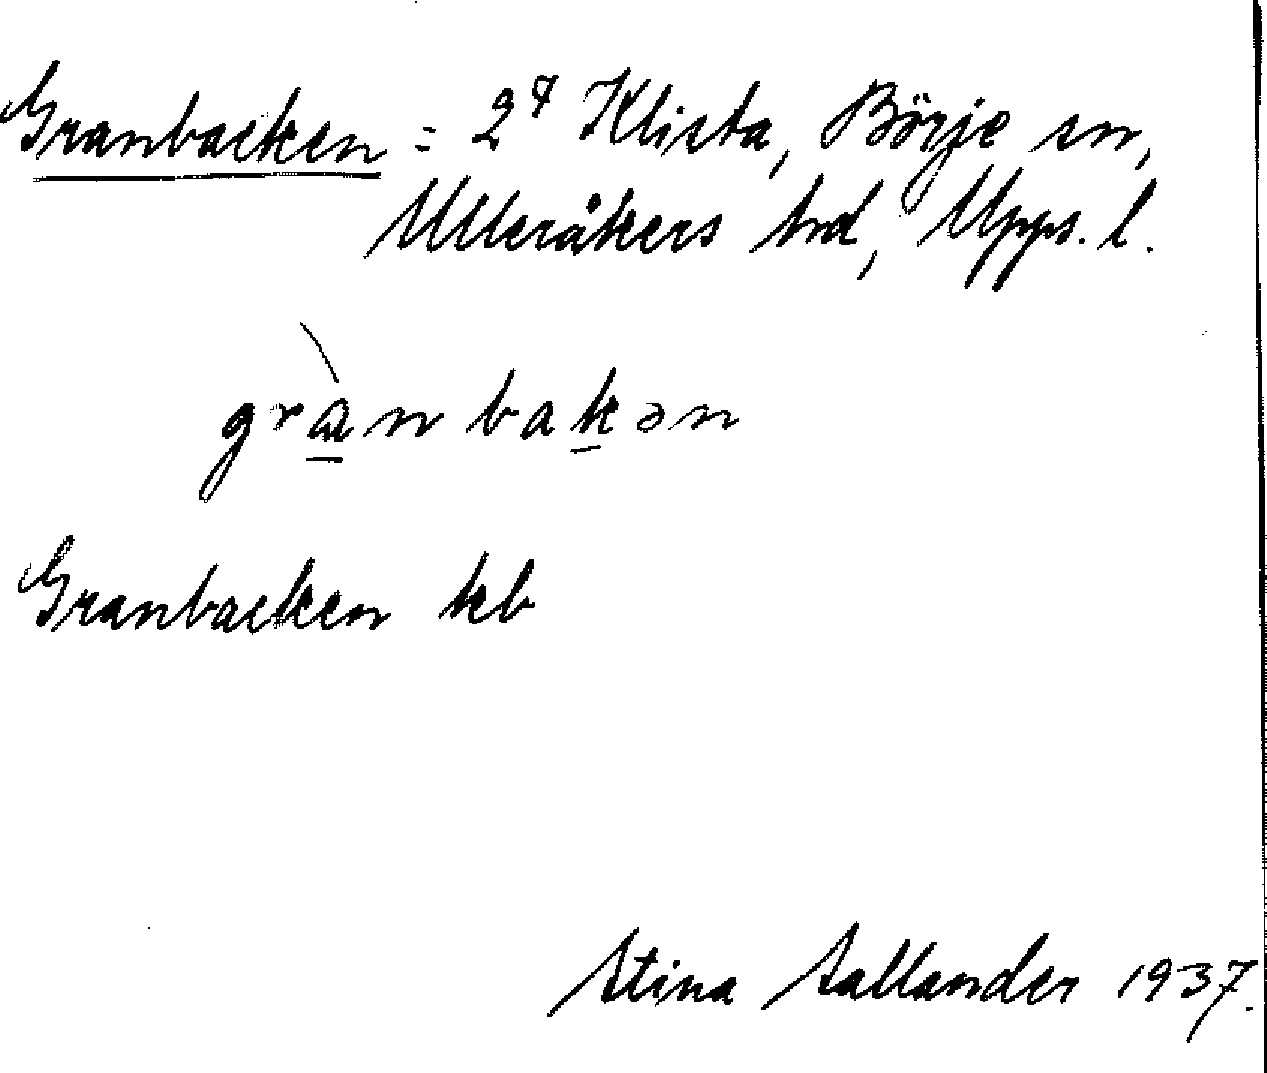 Granbacken = 2⁷ Klista, Börje sn,
Ulleråkers hrd, Upps. l.
grànbakən
Granbacken kb
Stina Sallander 1937.